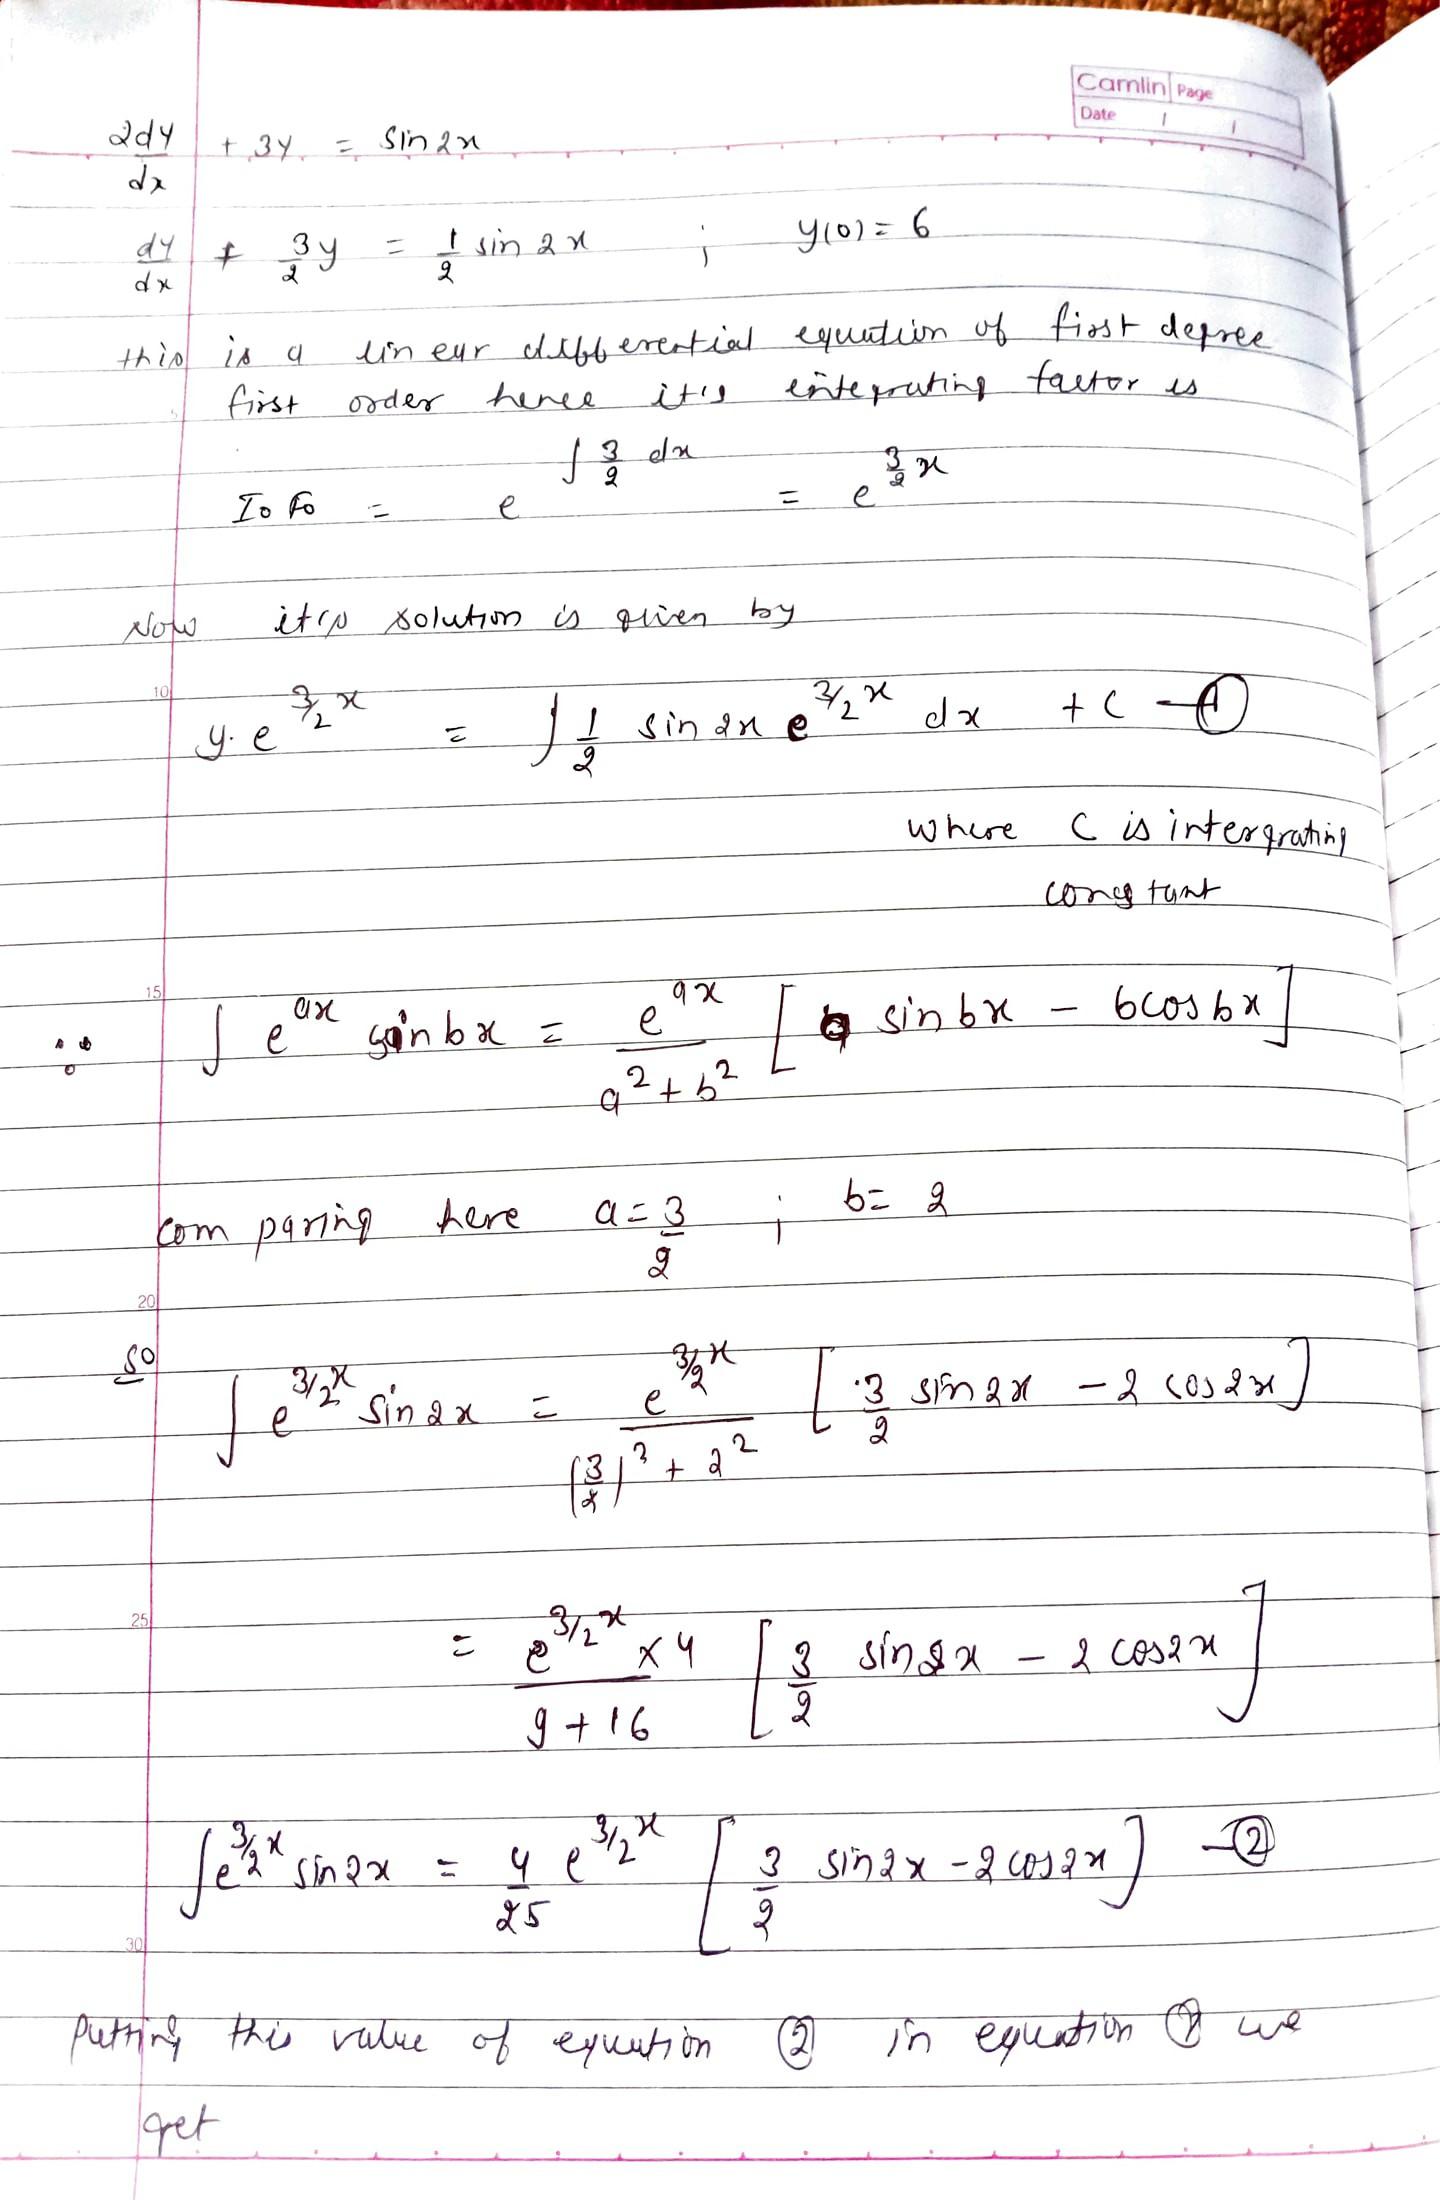 Camlin Page
Date / /
2dy/dx + 3y = sin2x
dy/dx + 3/2 y = 1/2 sin 2x ; y(0) = 6
this is a linear differential equation of first degree
first order hence it's integrating factor is
I.F. = e^∫ 3/2 dx = e^3/2 x
Now it's solution is given by
10
y. e^3/2 x = ∫ 1/2 sin 2x e^3/2 x dx + C — ①
where C is intergrating
constant
15
∵ ∫ e^ax sin bx = e^ax / a² + b² [ a sin bx - b cos bx ]
com paring here a = 3/2 ; b = 2
20
so
∫ e^3/2 x sin 2x = e^3/2 x / (3/2)^3 + 2² [ 3/2 sin 2x - 2 cos 2x ]
25
= e^3/2 x × 4 / 9 + 16 [ 3/2 sin 2x - 2 cos 2x ]
∫ e^3/2 x sin 2x = 4/25 e^3/2 x [ 3/2 sin 2x - 2 cos 2x ] — ②
30
Putting this value of equation ② in equation ① we
get